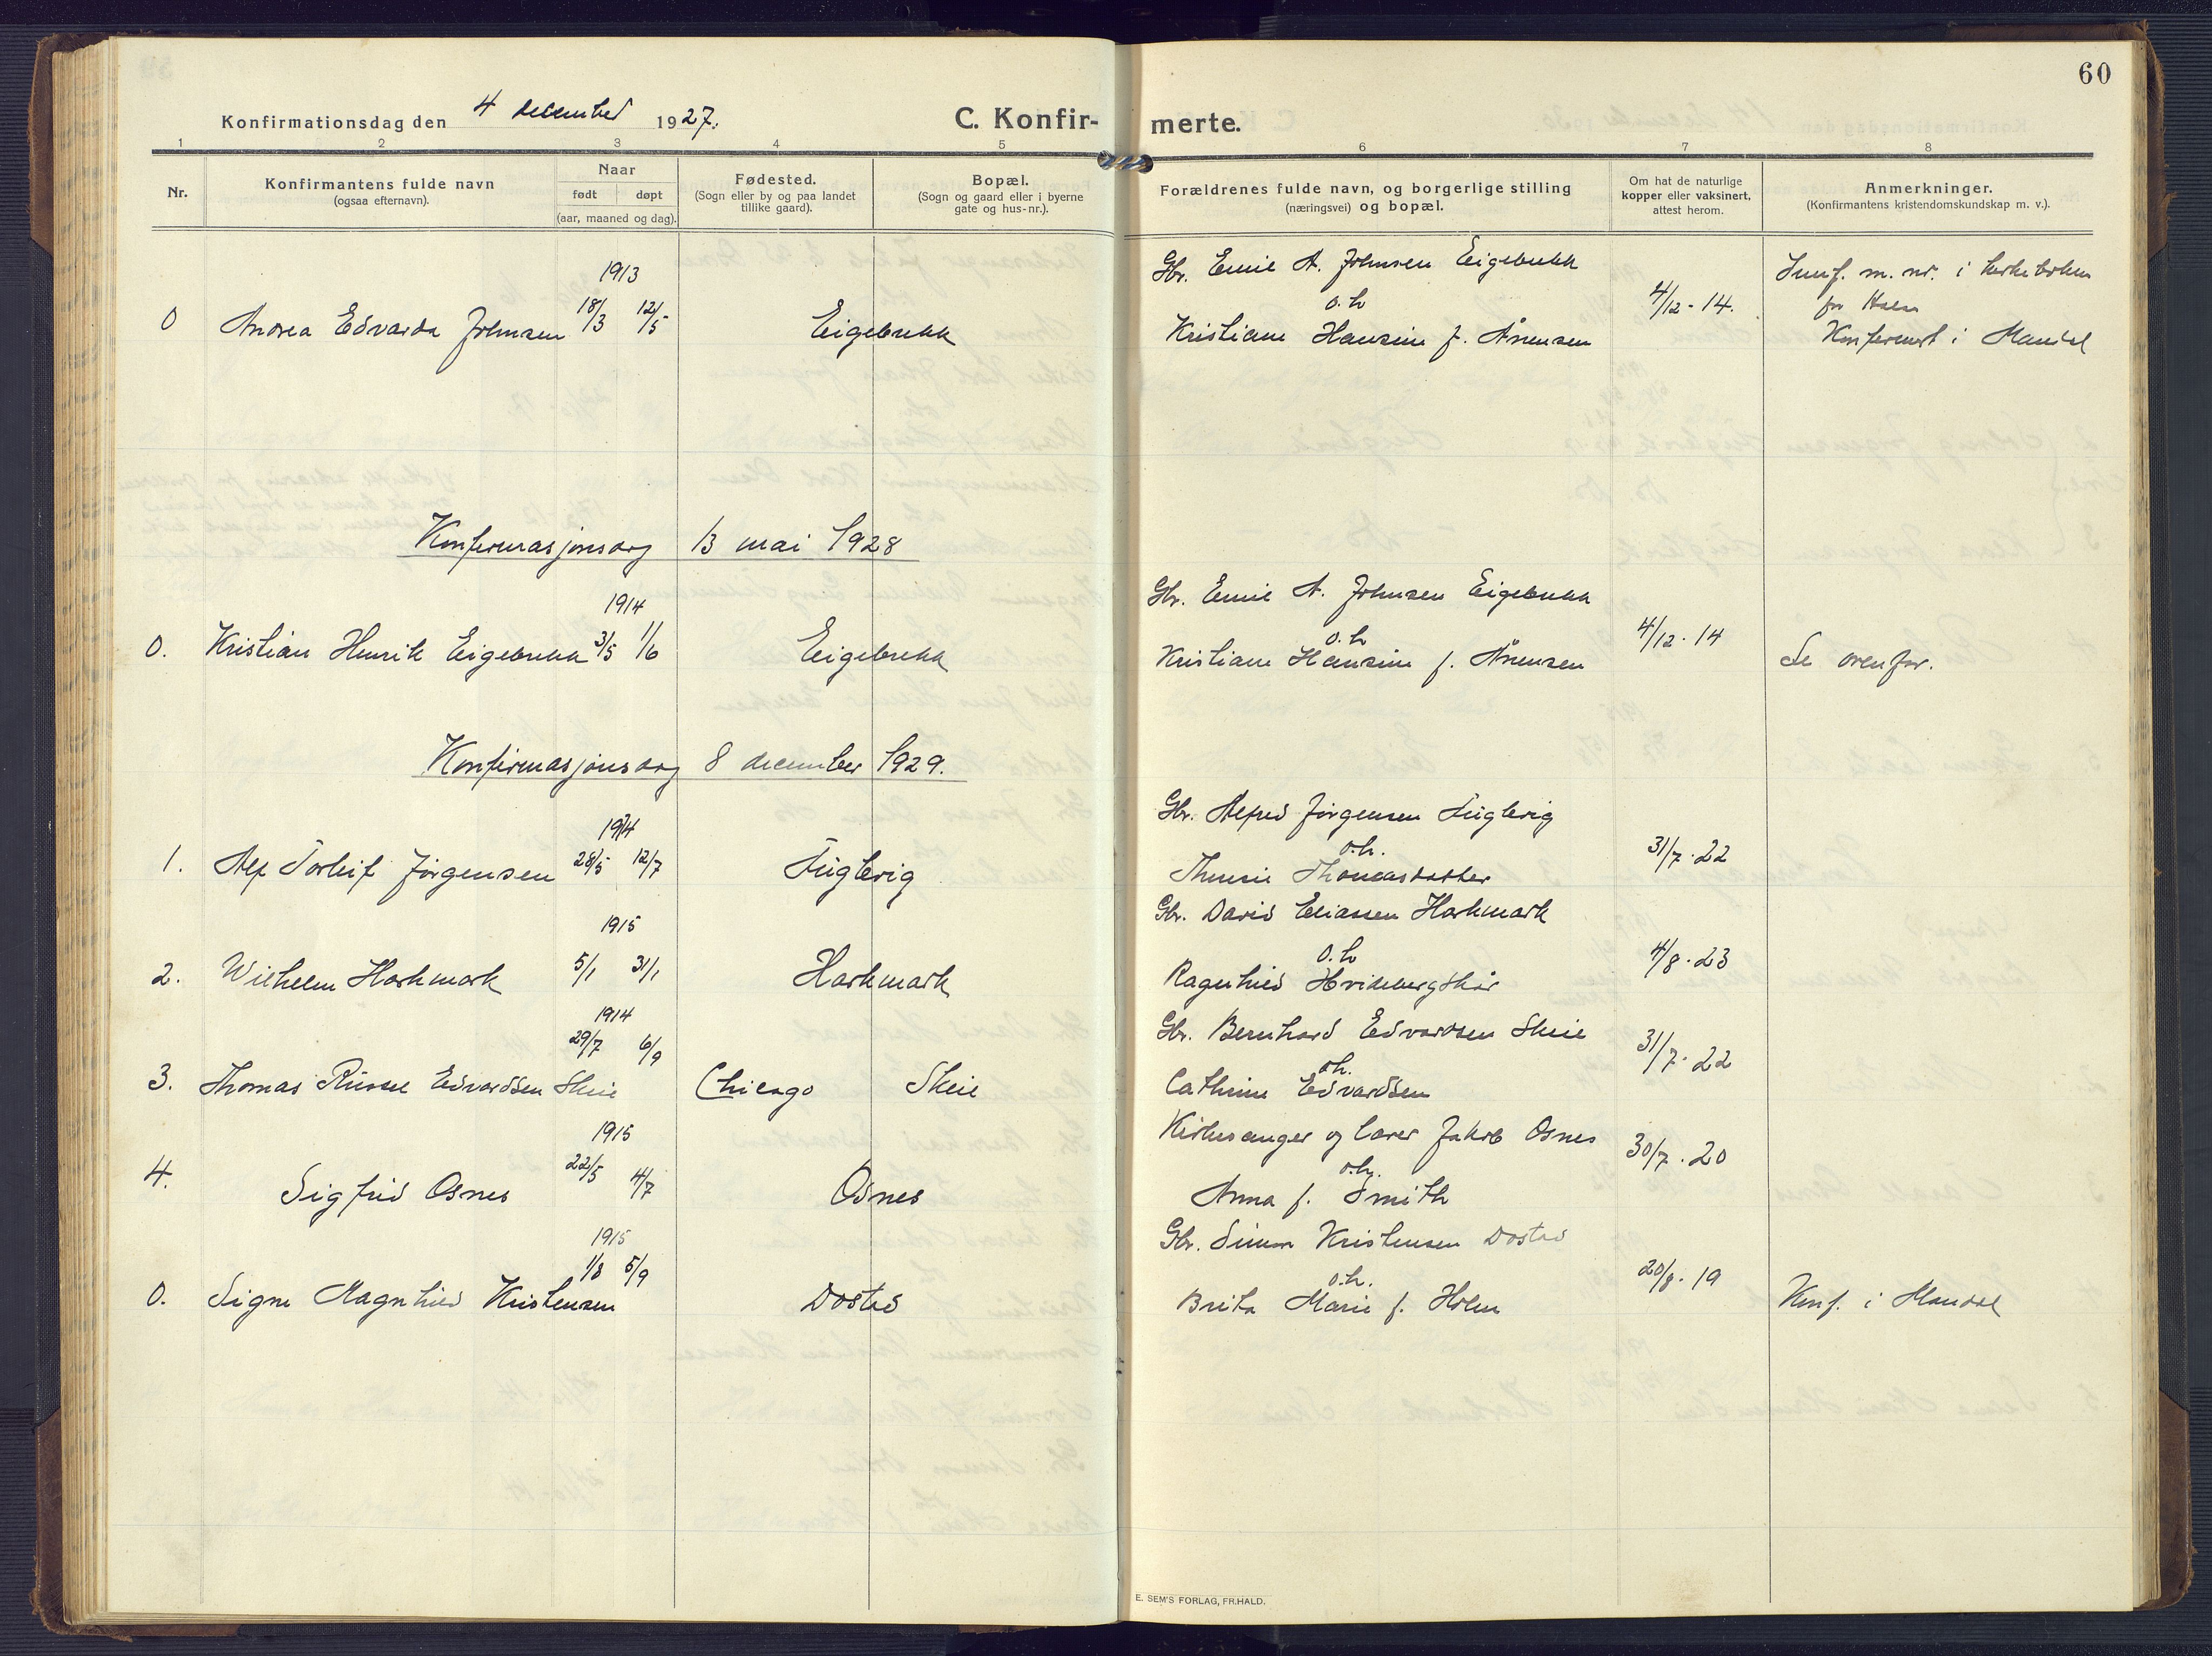 60
Konfirmationsdag den 4 december 1927.
C. Konfirmerte.
1 2 3 4 5 6 7 8
Nr.
Konfirmantens fulde navn
(ogsaa efternavn).
Naar
født døpt
(aar, maaned og dag).
Fødested.
(Sogn eller by og paa landet
tillike gaard).
Bopæl.
(Sogn og gaard eller i byerne
gate og hus-nr.).
Forældrenes fulde navn, og borgerlige stilling
(næringsvei) og bopæl.
Om hat de naturlige
kopper eller vaksinert,
attest herom.
Anmerkninger.
(Konfirmantens kristendomskundskap m. v.).
1913
0 Andrea Edvarda Johnsen 18/3 12/5 Eigebrekk
Gbr. Emil A. Johnsen Eigebrekk
o. h
Kristiane Hansine f. Ånensen
4/12-14.
m. nr. i kirkeboken
for Halse
Konfirmert i Mandal
Konfirmasjonsdag 13 mai 1928
1914
0. Kristian Henrik Eigebrekk 3/5 1/6 Eigebrekk
Gbr. Emil A. Johnsen Eigebrekk
o. h
Kristiane Hansine f. Ånensen
4/12-14
Se ovenfor.
Konfirmasjonsdag 8 december 1929.
1914
1. Alf Torleif Jørgensen 28/5 12/7 Fuglevig
Gbr. Alfred Jørgensen Fuglevig
o. h.
Thomasdatter
31/7-22
1915
2. Wilhelm Harkmark 5/1 31/1 Harkmark
Gbr. David Eliassen Harkmark
o. h
Ragnhild
4/8-23
1914
3. Thomas Russel Edvardsen Skeie 29/7 6/9 Chicago Skeie
Gbr. Bernhard Edvardsen Skeie
o h.
Cathrine Edvardsen
31/7-22
1915
4. Sigfrid Osnes 22/5 4/7 Osnes
Kirkesanger og lærer Jakob Osnes
o. h.
Anna f. Smith
30/7.20
1915
0. Signe Magnhild Kristensen 1/8 5/9 Dostad
Gbr. Simon Kristensen Dostad
o. h.
Berta Marie f. Holm
20/8-19
Konf. i Mandal
E. SEM'S FORLAG, FR.HALD.